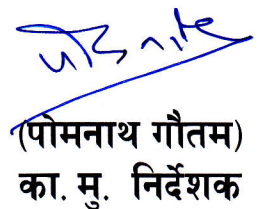 (पोमनाथ गौतम)
का. मु. निर्देशक